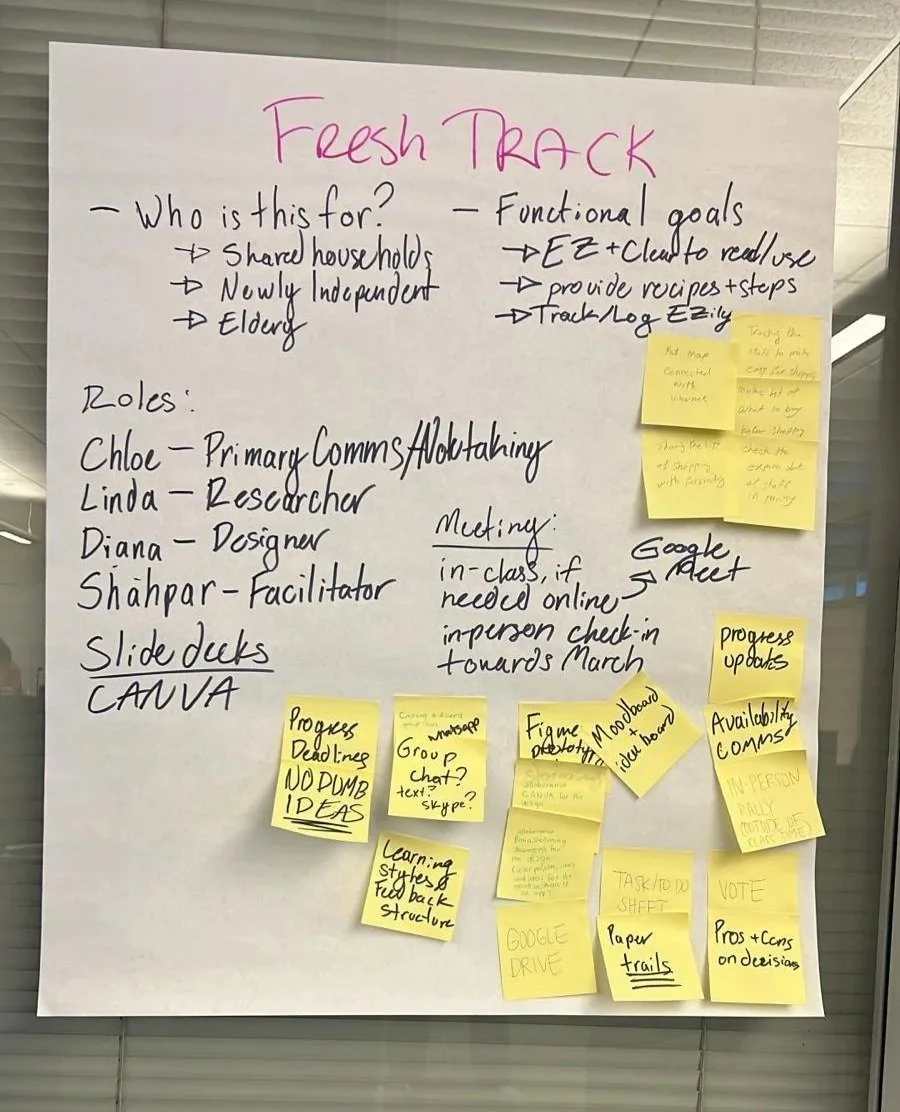 FRESH TRACK
- Who is this for?
→ Shared households
→ Newly Independent
→ Eldery
- Functional goals
→ EZ + Clear to read/use
→ provide recipes + steps
→ Track/Log EZily
Put map
connected
with
internet
Tracking the
stuff to make
easy for shopping
make list of
what to buy
before shopping
sharing the list
of shopping
with family
check the
expire date
of stuff
in pantry
Roles:
Chloe - Primary Comms/Notetaking
Linda - Researcher
Diana - Designer
Shahpar - Facilitator
Slide decks
CANVA
Meeting:
in-class, if
needed online → Google
Meet
in-person check-in
towards March
Progress
Deadlines
NO DUMB
IDEAS
whatsapp
Group
chat?
text?
skype?
Learning
styles &
Feedback
structure
Figma
prototype
Moodboard
+
idea board
CANVA for the
design
brainstorming
the design
GOOGLE
DRIVE
TASK/TO DO
SHEET
Paper
trails
progress
updates
Availability
comms
IN-PERSON
(OUTSIDE OF
CLASS TIME)
VOTE
Pros + Cons
on decisions